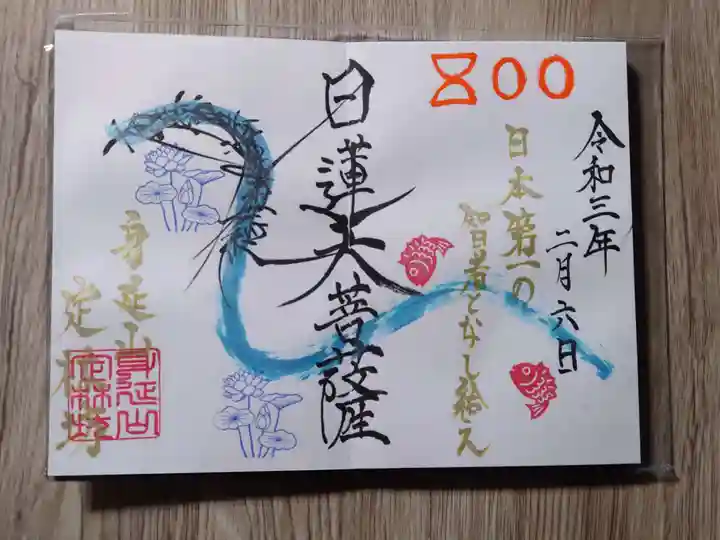 800
令和三年
二月六日
日本第一の
智者となし給え
日蓮大菩薩
身延山
定林坊
身延山
定林坊